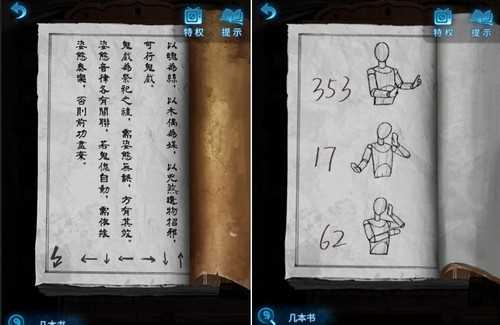 特权
提示
以魄為絲，以木偶為媒，以兇煞遺物招邪，
可行鬼戲。
鬼戲為祭祀之禮，需姿態無誤，方有其效。
姿態音律各有關聯，若鬼傀自動，需依據
姿態奏樂，否則前功盡棄。
几本书
特权
提示
353
17
62
几本书